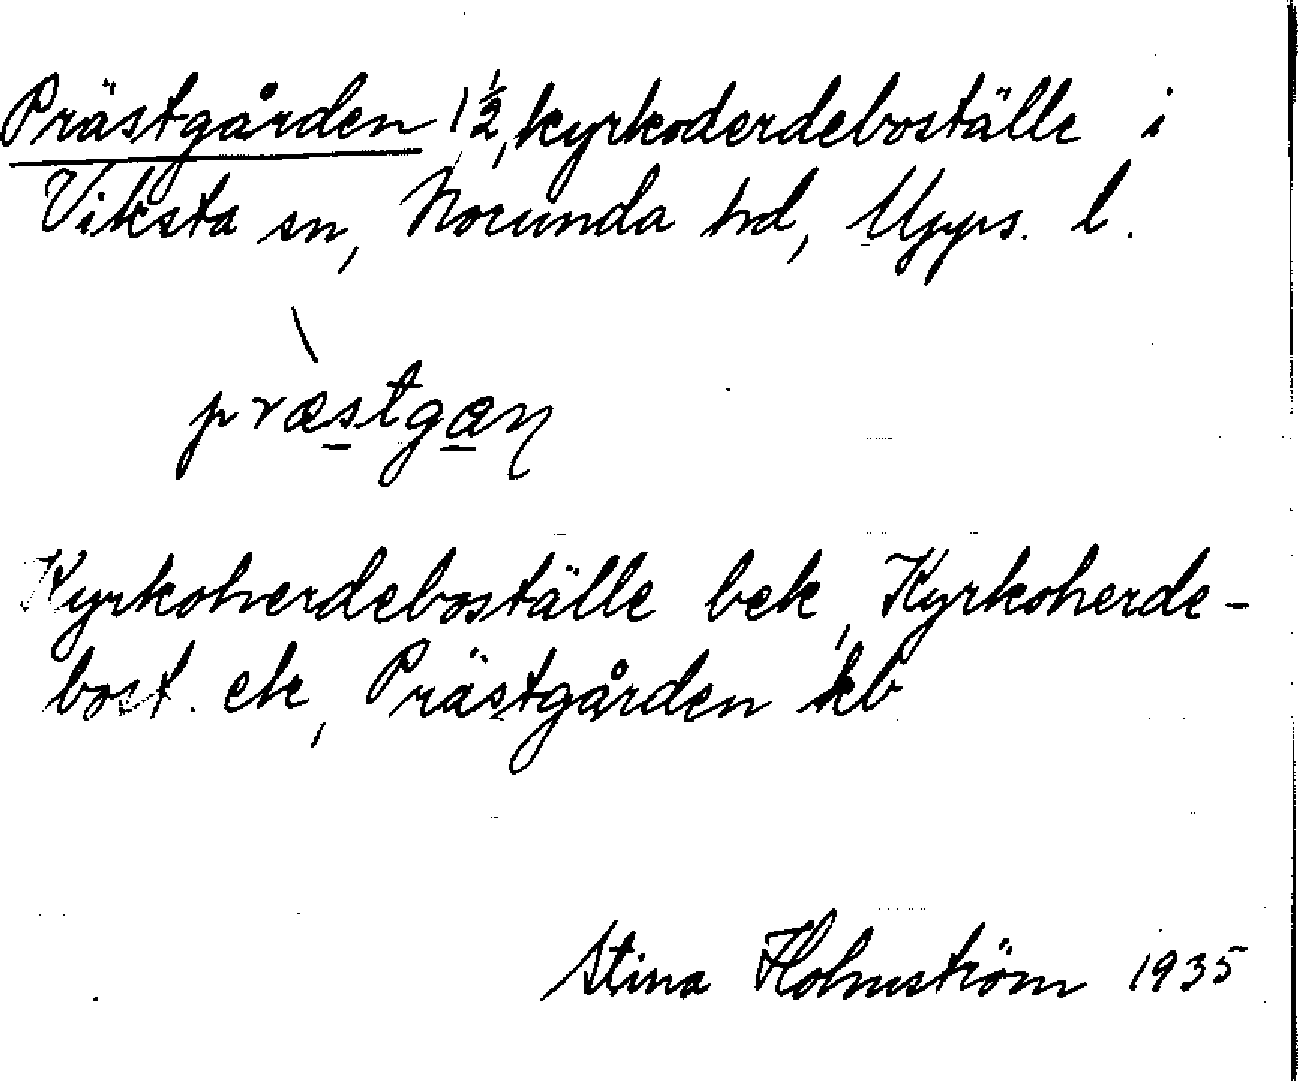 Prästgården 1 ½, kyrkoderdeboställe i
Viksta sn, Norunda hd, Upps. l.
præ̀stgæn
Kyrkoherdeboställe bek, Kyrkoherde-
bost. ek, Prästgården kb
Stina Holmström 1935